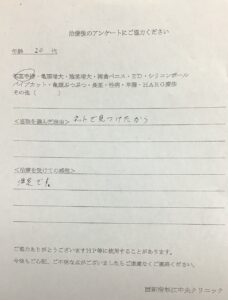 治療後のアンケートにご協力ください
年齢 20 代
包茎手術・亀頭増大・陰茎増大・陰嚢ペニス・ED・シリコンボール
パイプカット・亀頭ぶつぶつ・長茎・性病・早漏・HARG療法
その他（　　）
＜当院を選んだ理由＞
ネットで見つけたから
＜治療を受けての感想＞
満足です
ご協力ありがとうございますHP等に使用することがあります。
今後もご心配、ご不便な点がございましたらご遠慮なくご連絡ください。
中央クリニック